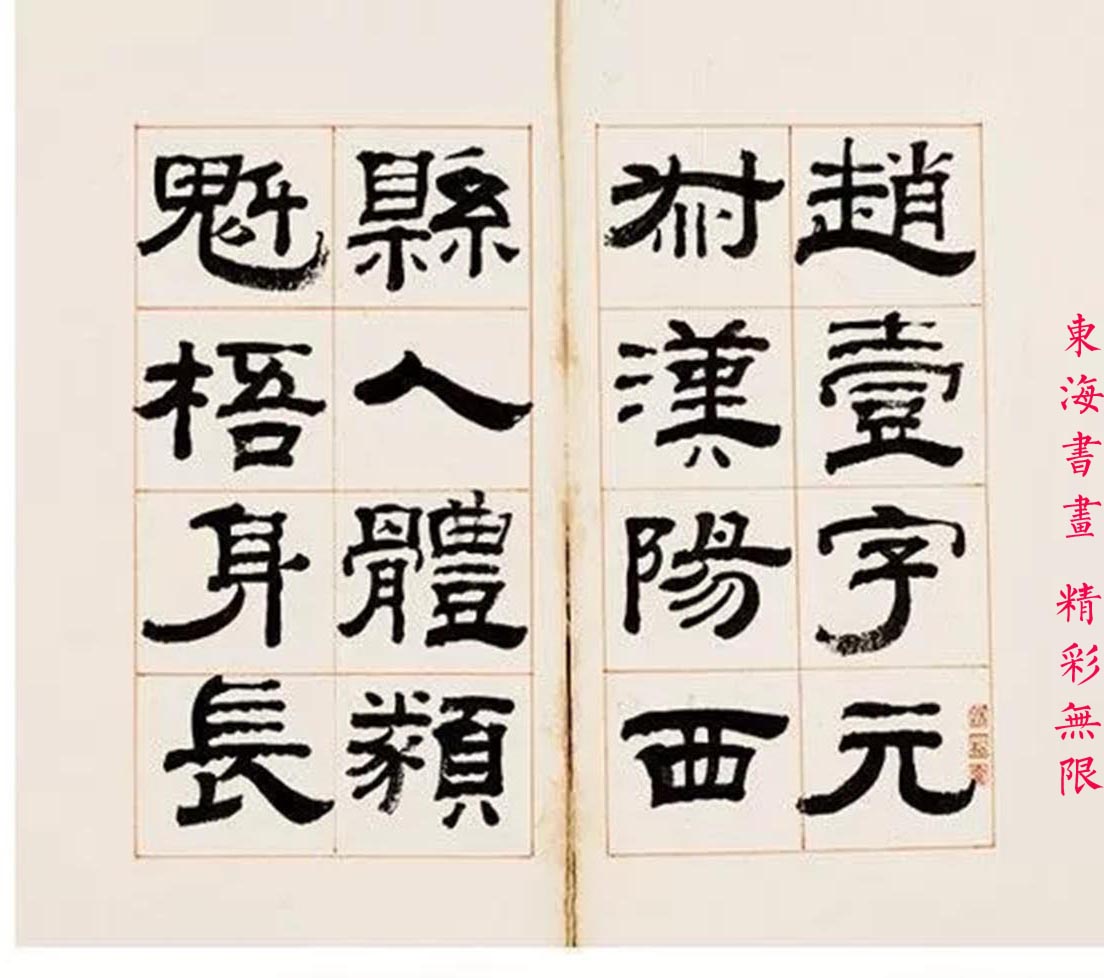 東海書畫 精彩無限
趙壹字元
叔漢陽西
縣人體䫉
魁梧身長